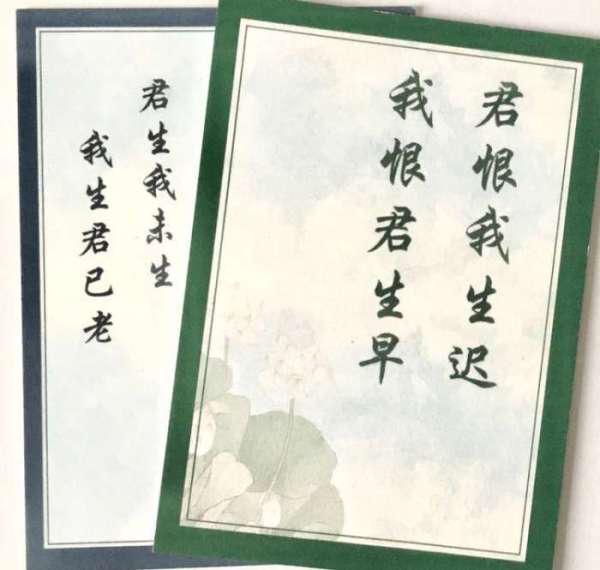 君生我未生
我生君已老
君恨我生迟
我恨君生早